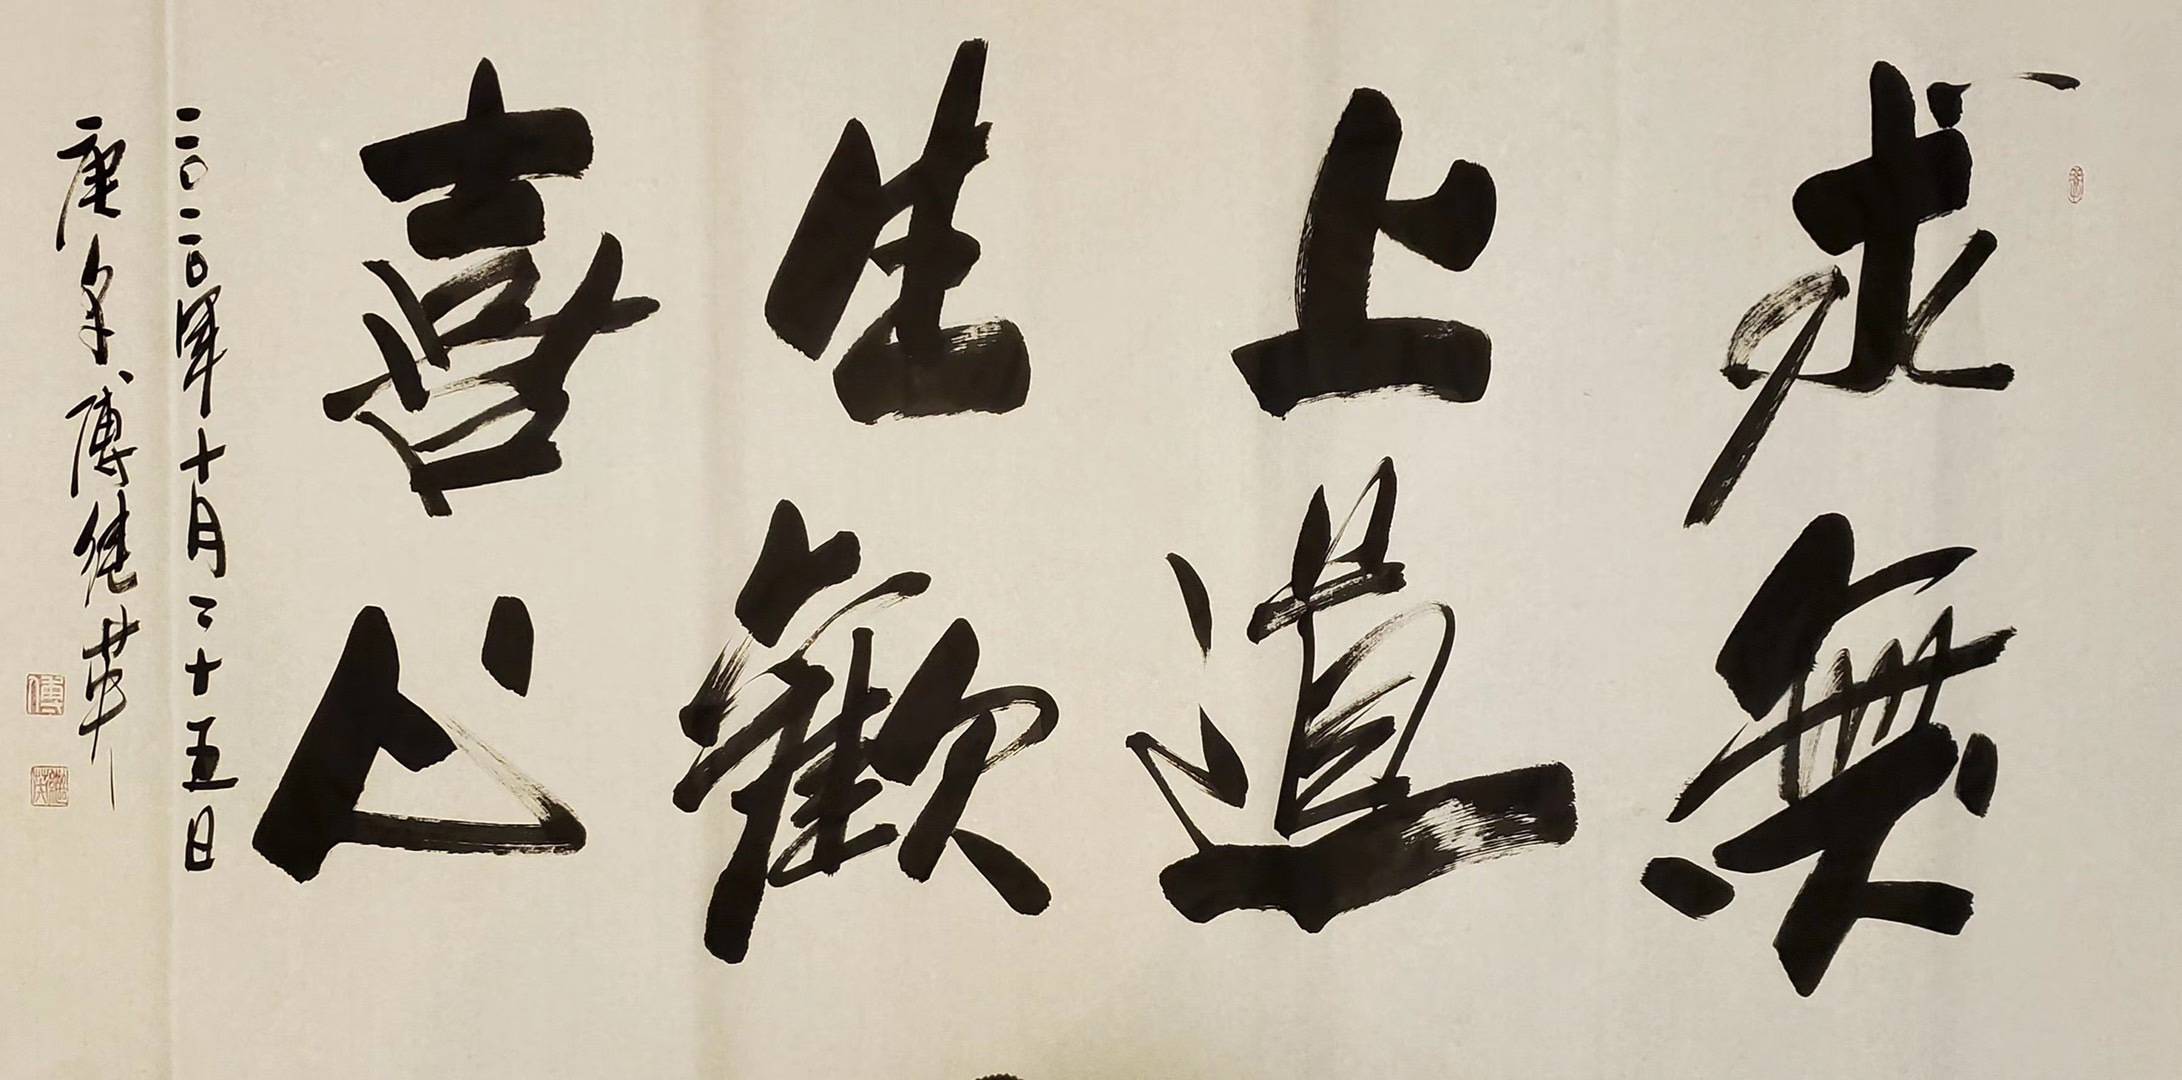 求無
上道
生歡
喜心
二〇二〇年十月二十五日
庚子傅继英